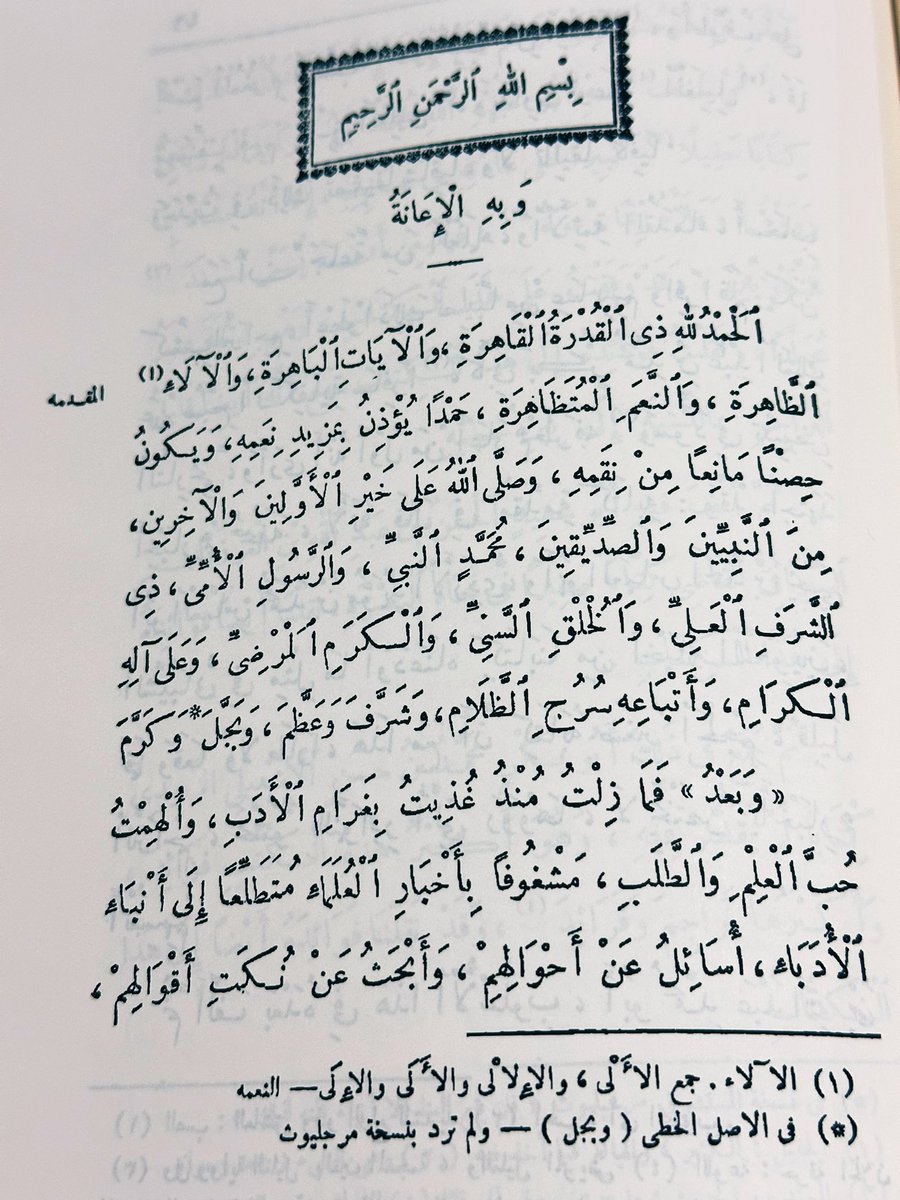 بِسْمِ اللهِ ٱلرَّحْمٰنِ ٱلرَّحِيمِ
وَبِهِ الْإِعَانَةُ
ٱلْحَمْدُ لِلهِ ذِى ٱلْقُدْرَةِ ٱلْقَاهِرَةِ، وَٱلْآيَاتِ ٱلْبَاهِرَةِ، وَٱلْآلَاءِ (١)
المقدمه
ٱلظَّاهِرَةِ، وَٱلنِّعَمِ ٱلْمُتَظَاهِرَةِ، حَمْدًا يُؤْذِنُ بِمَزِيدِ نِعَمِهِ، وَيَكُونُ
حِصْنًا مَانِعًا مِنْ نِقَمِهِ، وَصَلَّى ٱللهُ عَلَى خَيْرِ ٱلْأَوَّلِينَ وَٱلْآخِرِينِ،
مِنَ ٱلنَّبِيِّينَ وَٱلصِّدِّيقِينَ، مُحَمَّدٍ ٱلنَّبِيِّ، وَٱلرَّسُولِ ٱلْأُمِّىِّ، ذِى
ٱلشَّرَفِ ٱلْعَلِىِّ، وَٱلْخُلْقِ ٱلسَّنِيِّ، وَٱلْكَرَمِ ٱلْمَرْضِىِّ، وَعَلَى آلِهِ
ٱلْكِرَامِ، وَأَتْبَاعِهِ سُرُجِ ٱلظَّلَامِ، وَشَرَّفَ وَعَظَّمَ، وَبَجَّلَ* وَكَرَّمَ
« وَبَعْدُ » فَمَا زِلْتُ مُنْذُ غُذِيتُ بِغَرَامِ ٱلْأَدَبِ، وَأُلْهِمْتُ
حُبَّ ٱلْعِلْمِ وَٱلطَّلَبِ، مَشْغُوفًا بِأَخْبَارِ ٱلْعُلَمَاءِ مُتَطَلِّعًا إِلَى أَنْبَاءِ
ٱلْأُدَبَاءِ، أُسَائِلُ عَنْ أَحْوَالِهِمْ، وَأَبْحَثُ عَنْ نُكَتِ أَقْوَالِهِمْ،
(١) الآلاء . جمع الأَلْى، والإِلاْى والأَكَى والإِكَى — النعمه
(*) فى الاصل الخطى ( وبجل ) — ولم ترد بنسخة مرجليوث